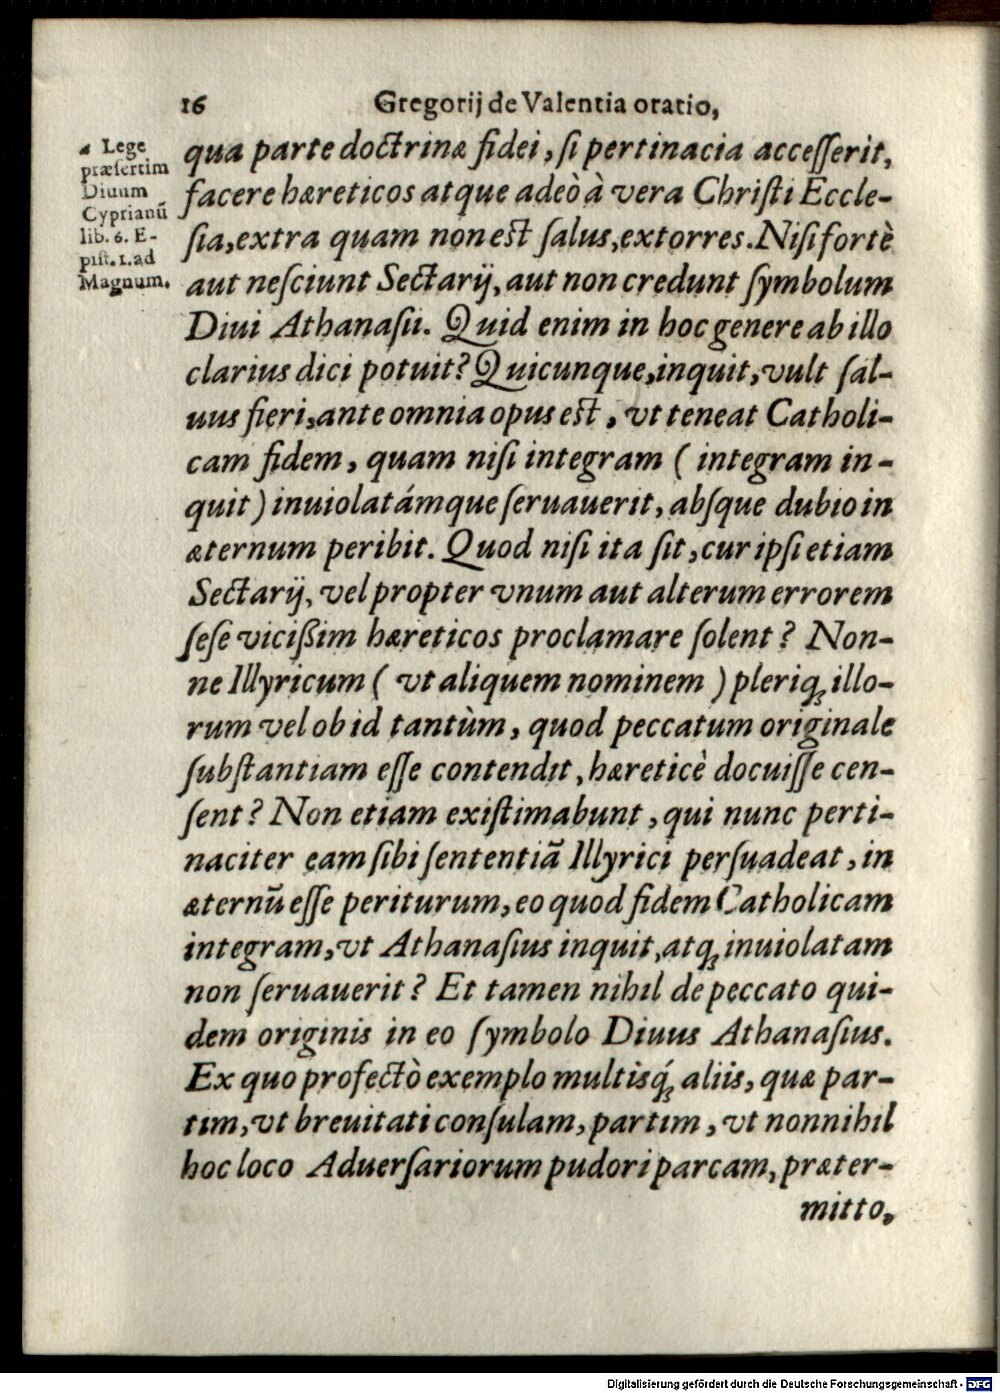 16 Gregorij de Valentia oratio,
a Lege
præsertim
Diuum
Cyprianū
lib. 6. E-
pist. 1. ad
Magnum.
qua parte doctrinæ fidei, si pertinacia accesserit,
facere hæreticos atque adeò à vera Christi Eccle-
sia, extra quam non est salus, extorres. Nisi fortè
aut nesciunt Sectarij, aut non credunt symbolum
Diui Athanasii. Quid enim in hoc genere ab illo
clarius dici potuit? Quicunque, inquit, vult sal-
uus fieri, ante omnia opus est, vt teneat Catholi-
cam fidem, quam nisi integram ( integram in-
quit ) inuiolatámque seruauerit, absque dubio in
æternum peribit. Quod nisi ita sit, cur ipsi etiam
Sectarij, vel propter vnum aut alterum errorem
sese vicißim hæreticos proclamare solent? Non-
ne Illyricum ( vt aliquem nominem ) pleriq; illo-
rum vel ob id tantùm, quod peccatum originale
substantiam esse contendit, hæreticè docuisse cen-
sent? Non etiam existimabunt, qui nunc perti-
naciter eam sibi sententiā Illyrici persuadeat, in
æternū esse periturum, eo quod fidem Catholicam
integram, vt Athanasius inquit, atq; inuiolatam
non seruauerit? Et tamen nihil de peccato qui-
dem originis in eo symbolo Diuus Athanasius.
Ex quo profectò exemplo multisq́; aliis, quæ par-
tim, vt breuitati consulam, partim, vt nonnihil
hoc loco Aduersariorum pudori parcam, præter-
mitto,
Digitalisierung gefördert durch die Deutsche Forschungsgemeinschaft - DFG